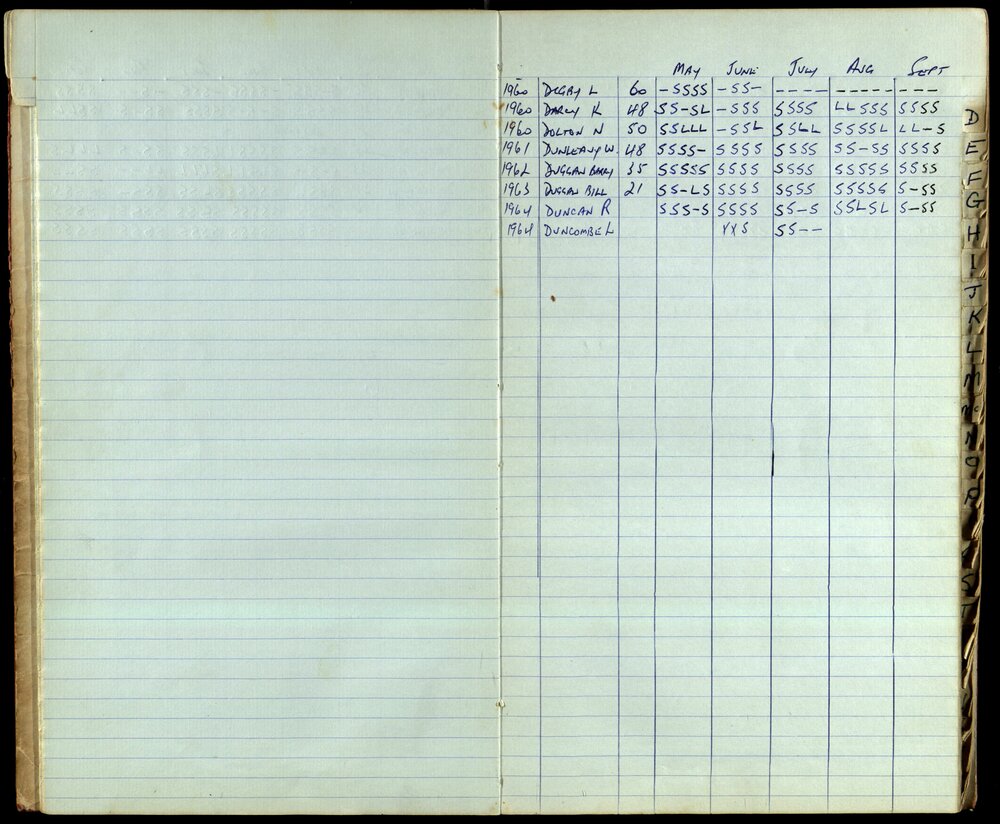 MAY JUNE JULY AUG SEPT
1960 DIGBY L 60 -SSSS -SS- ---- ----- ---
1960 DARCY K 48 SS-SL -SSS SSSS LLSSS SSSS
1960 DOLTON N 50 SSLLL -SSL SSLL SSSSL LL-S
1961 DUNLEAVY W. 48 SSSS- SSSS SSSS SS-SS SSSS
1962 DUGGAN BARY 35 SSSSS SSSS SSSS SSSSS SSSS
1963 DUGGAN BILL 21 SS-LS SSSS SSSS SSSSS S-SS
1964 DUNCAN R SSS-S SSSS SS-S SSLSL S-SS
1964 DUNCOMBE L XXS SS--
D
E
F
G
H
I
J
K
L
M
Mc
N
O
P
S
T